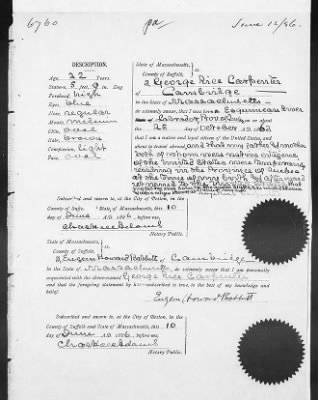 6760
June 12/86.
DESCRIPTION.
Age, 22 Years.
Stature, 5 feet 9 in. Eng
Forehead, high
Eyes, blue
Nose, regular
Mouth, medium
Chin, oval
Hair, brown
Complexion, light
Face, oval
State of Massachusetts,
County of Suffolk,
I George Rice Carpenter
of Cambridge
in the State of Massachusetts
do solemnly swear that I was born at Esquimeaux River
on
the 25 of October 1863
that I am a native and loyal citizen of the United States, and
about to travel abroad, and that my father & mother
both of whom were native citizens
of the United States were temporarily
residing in the Province of Quebec
at the time of my birth but afterward
returned to
Subscribed and sworn to, at the City of Boston, in the
County of Suffolk and State of Massachusetts, this 10
day of June A.D. 1886, before me,
Notary Public.
State of Massachusetts,
County of Suffolk,
I, Eugene Howard Babbitt of Cambridge
in the State of Massachusetts, do solemnly swear that I am personally
acquainted with the above-named George Rice Carpenter
and that the foregoing statement by him subscribed is true, to the best of my knowledge and
belief.
Eugene Howard Babbitt
Subscribed and sworn to, at the City of Boston, in the
County of Suffolk and State of Massachusetts, this 10
day of June A.D. 1886, before me,
Notary Public.